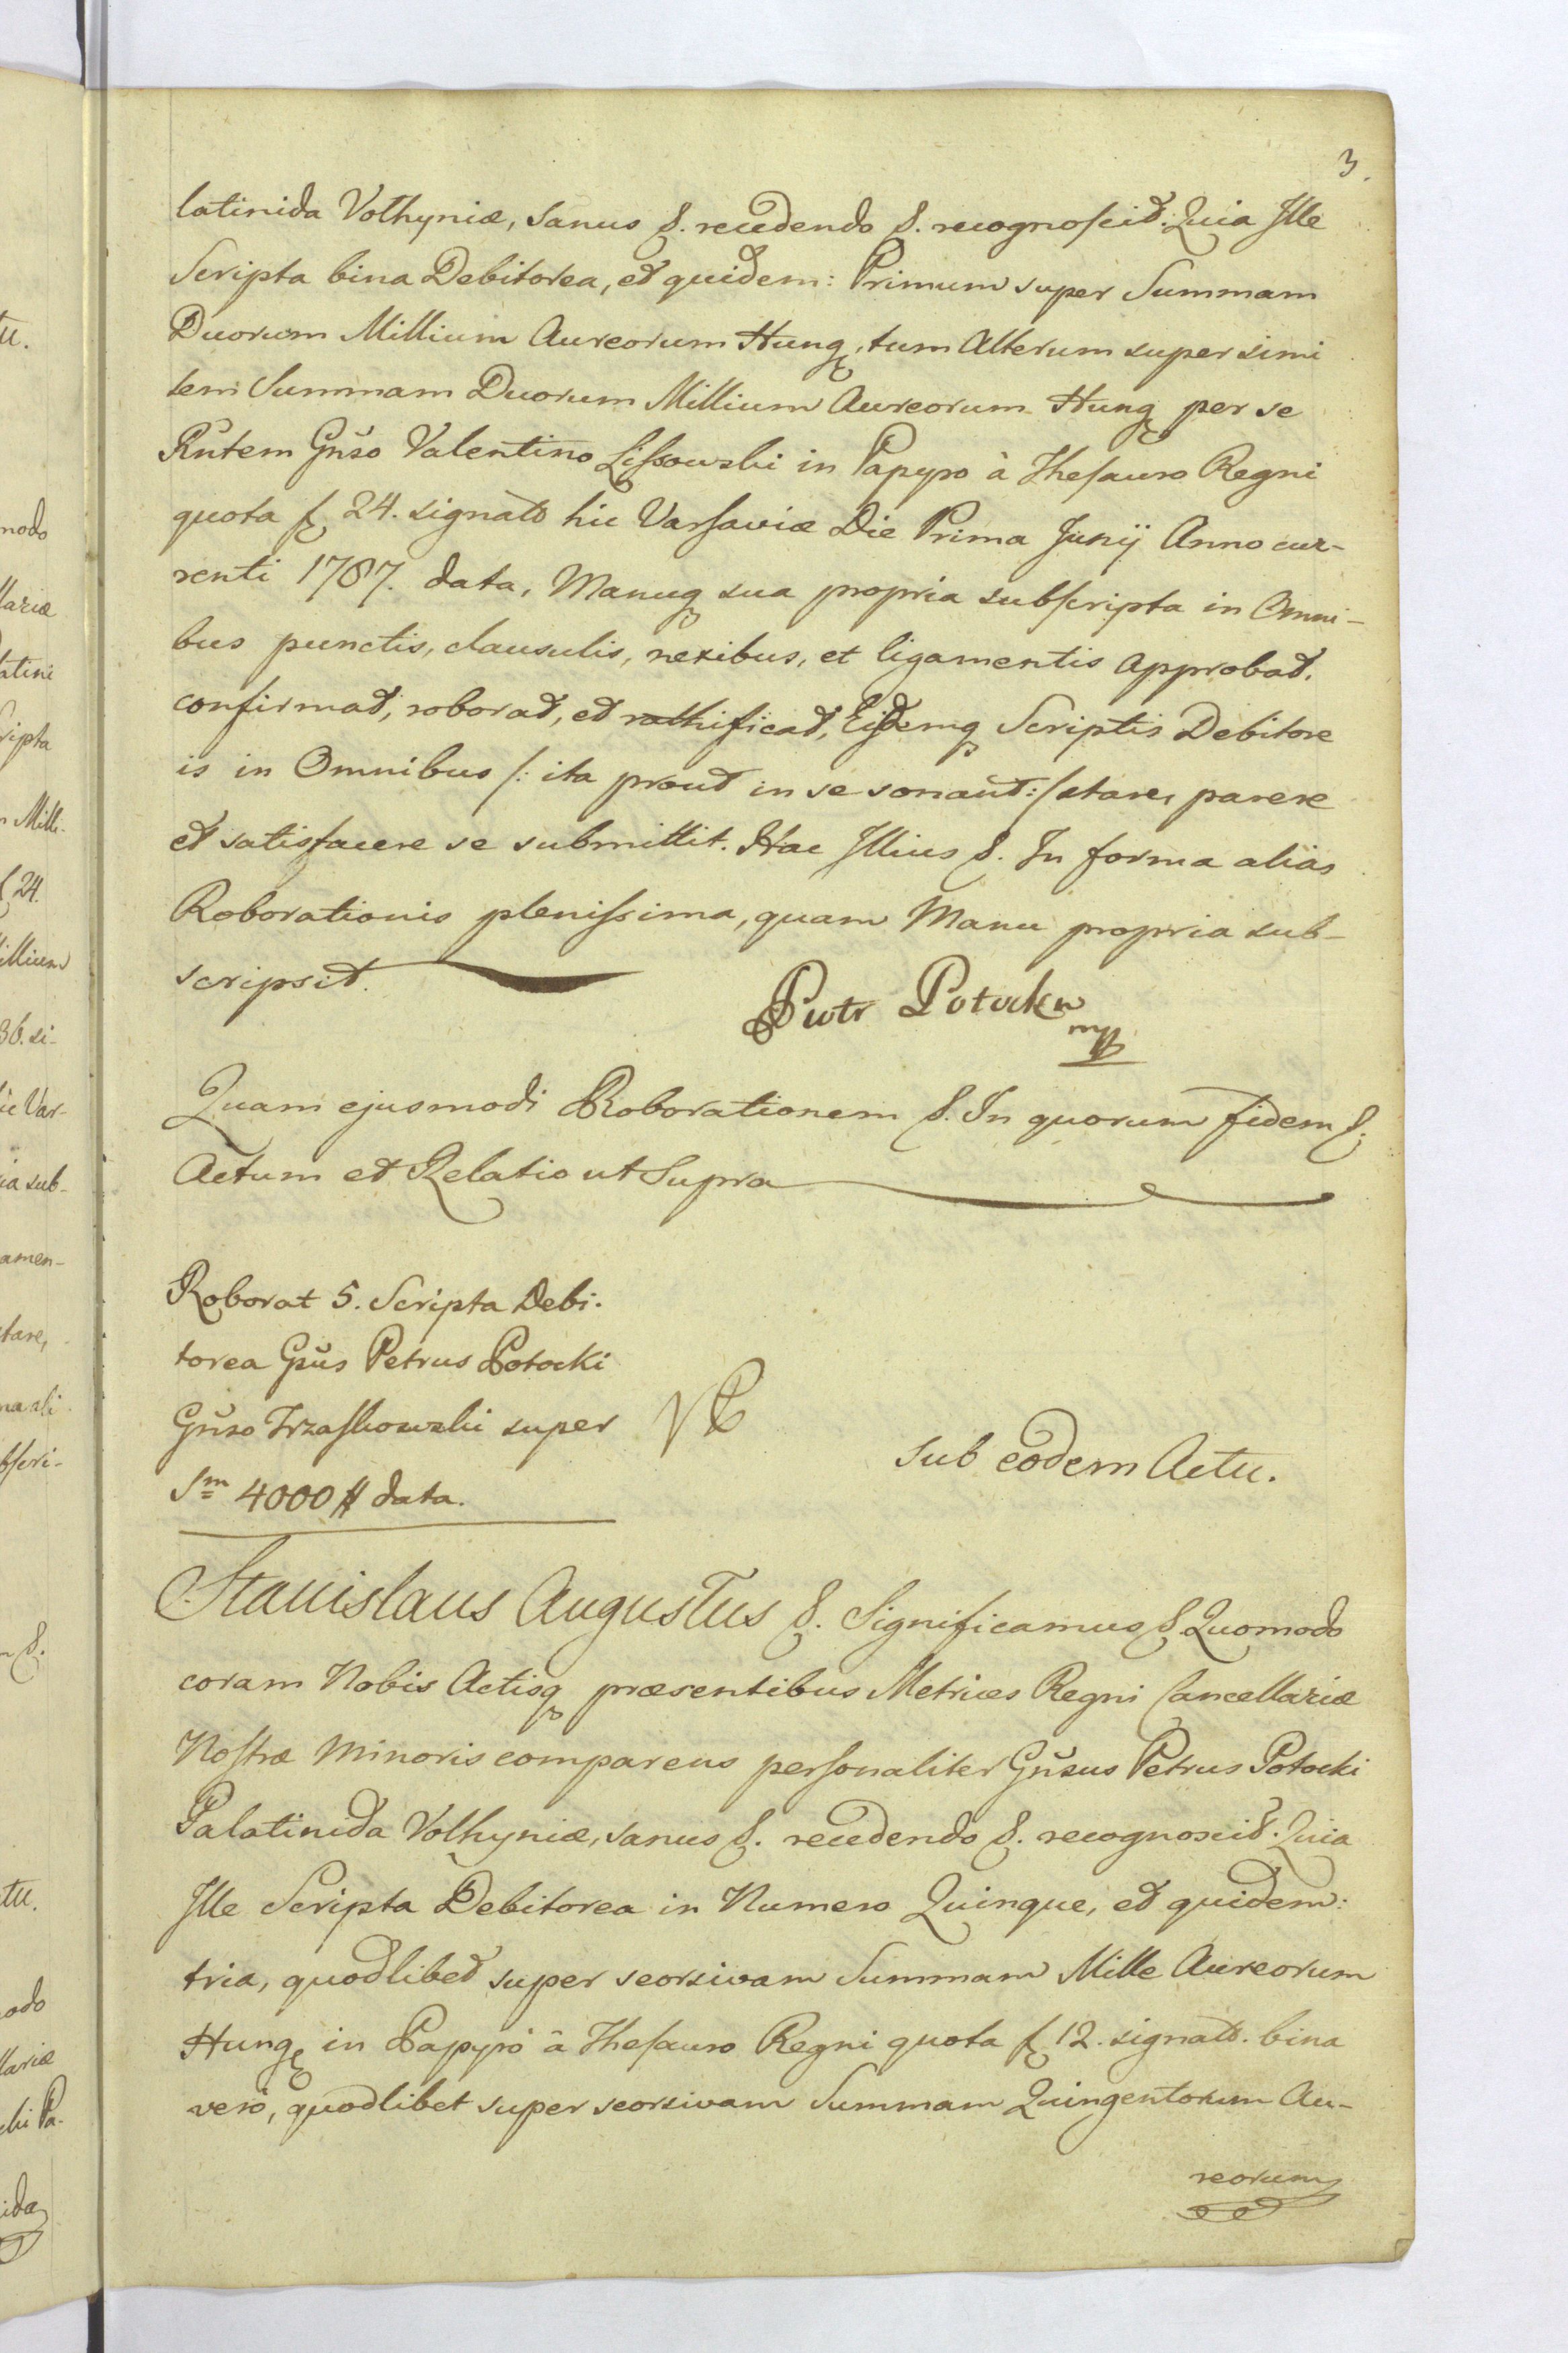 3.
latinida Volhyniæ, sanus &. recedendo &. recognoscit: Quia Ille
Scripta bina Debitorea, et quidem: Primum super Summam
Duorum Millium Aureorum Hung, tum Alterum super simi
lem Summam Duorum Millium Aureorum Hung per se
Rñtem Gñso Valentino Lissowski in Papyro à Thesauro Regni
quota f 24. signato hic Varsaviæ Die Prima Junij Anno cur-
renti 1787. data, Manuq sua propria subscripta in Omni-
bus punctis, clausulis, nexibus, et ligamentis Approbat,
confirmat, roborat, et rathificat, Eisdemq Scriptis Debitore
is in Omnibus /: ita prout in se sonant :/ stare, parere
et satisfacere se submittit. Hac Illius &. In forma aliàs
Roborationis plenissima, quam Manu propria sub-
scripsit.
Piotr Potocki
mp
Quam ejusmodi Roborationem &. In quorum fidem &.
Actum et Relatio ut Supra
Roborat 5. Scripta Debi-
torea Gñus Petrus Potocki
Gñso Trzaskowski super
Sm 4000 # data.
sub eodem Actu.
Stanislaus Augustus &. Significamus &. Quomodo
coram Nobis Actisq præsentibus Metrices Regni Cancellariæ
Nostræ Minoris comparens personaliter Gñsus Petrus Potocki
Palatinida Volhyniæ, sanus &. recedendo &. recognoscit. Quia
Ille Scripta Debitorea in Numero Quinque, et quidem:
tria, quodlibet super seorsivam Summam Mille Aureorum
Hung in Papyro à Thesauro Regni quota f 12. signato. bina
verò, quodlibet super seorsivam Summam Quingentorum Au-
reorum
tu.
modo
llariæ
latini
cripta
n Milli-
f 24.
illium
36. si-
ic Var-
ia sub-
amen-
stare,
ma ali
bscri-
m &.
tu.
odo
llariæ
cki Pa-
ida